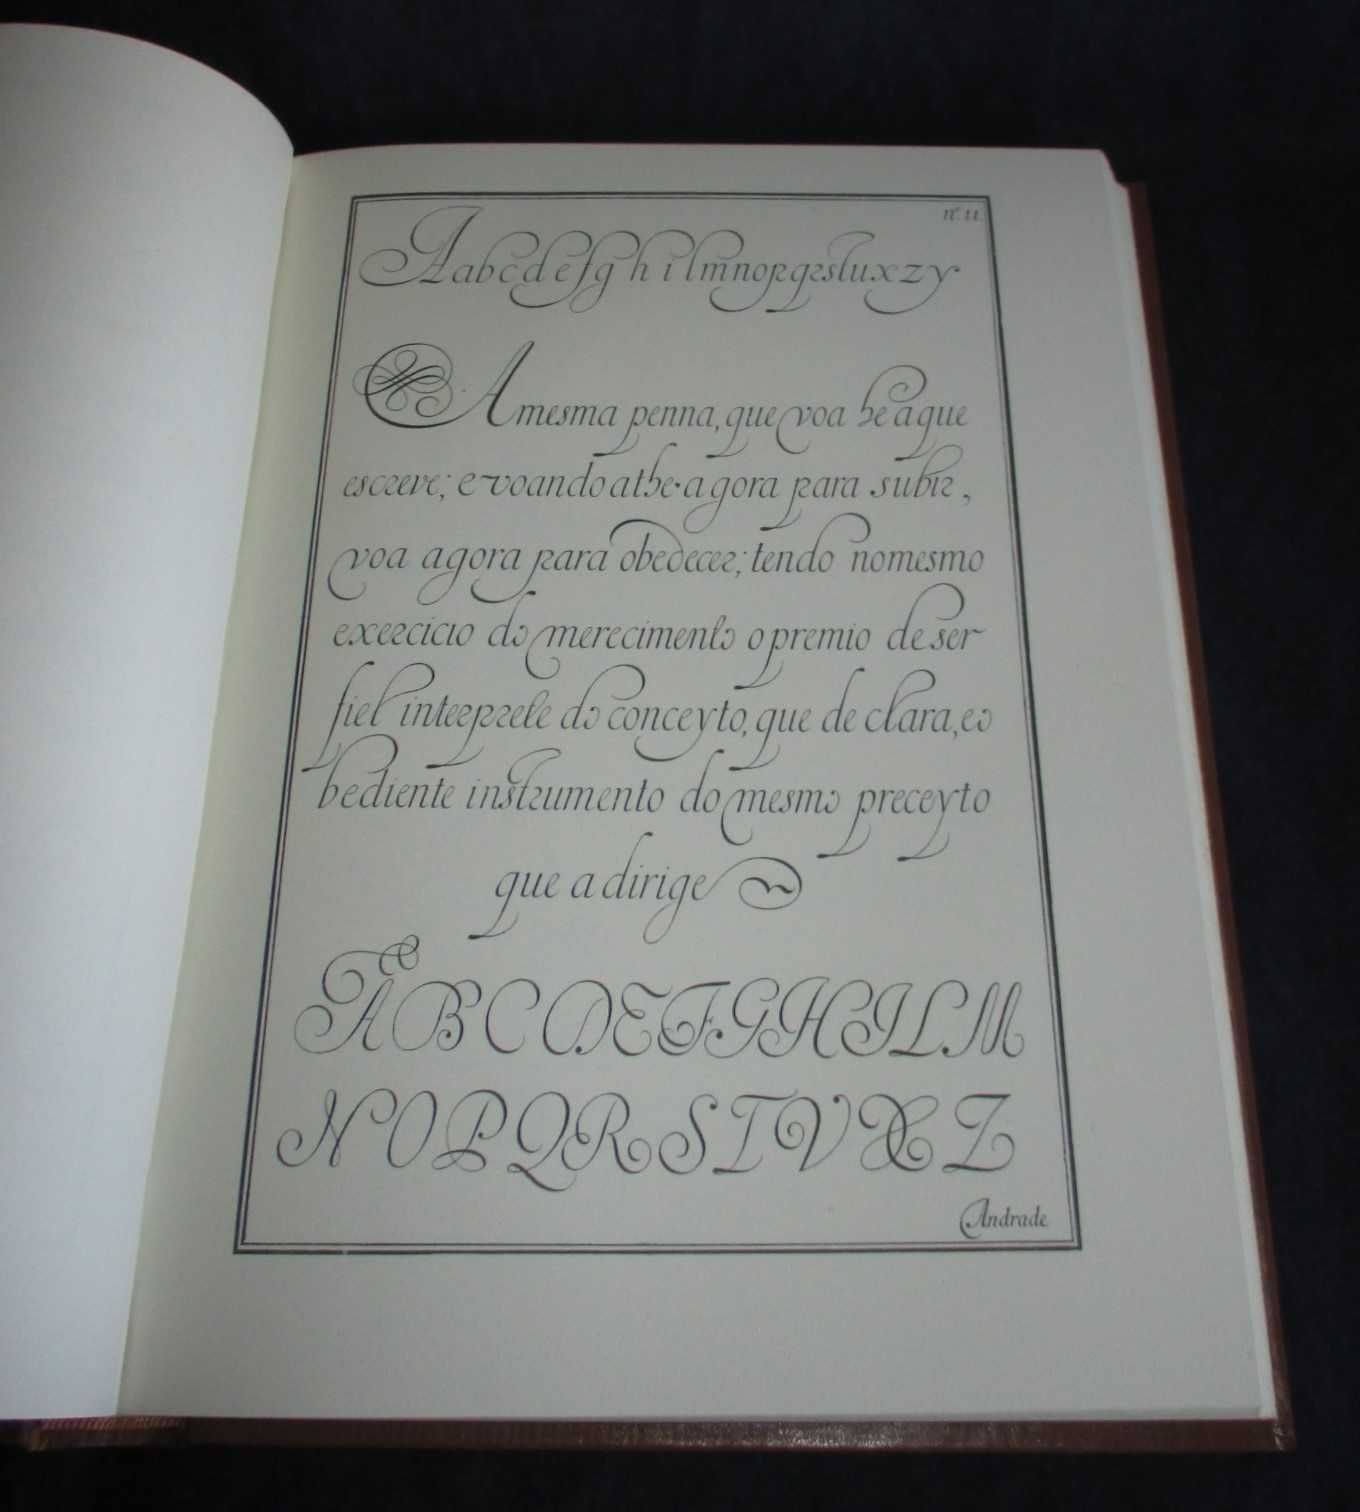 nº. 11
A a b c d e f g h i l m n o p q r s t u x z y
A mesma penna, que voa he a que
escreve; e voando athe agora para subir,
voa agora para obedecer; tendo nomesmo
exercicio do merecimento o premio de ser
fiel interprete do conceyto, que de clara, eo
bediente instrumento do mesmo preceyto
que a dirige
A B C D E F G H I L M
N O P Q R S T V X Z
Andrade